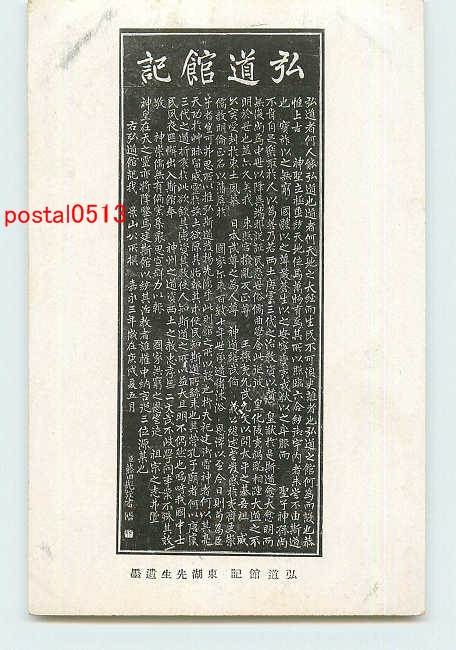 弘道館記
弘道者何人能弘道也道者何天地之大經而生民不可須臾離者也弘道之館何爲而設也恭
惟上古 神聖立極垂統天地位焉萬物育焉其所以照臨六合統御宇内者未嘗不由斯道
也 寶祚以之無窮 國體以之尊嚴蒼生以之安寧蠻夷戎狄以之率服而 聖子神孫尚
不肯自足樂取於人以爲善乃若西土唐虞三代之治教資以贊 皇猷於是斯道愈大愈明而
無復尚焉中世以降異端邪説誣民惑世俗儒曲學舍此從彼 皇化陵夷禍亂相踵大道之不
明於世也蓋亦久矣我 東照宮撥亂反正尊 王攘夷允武允文以開太平之基吾祖 威
公實受封於東土夙慕 日本武尊之爲人尊 神道繕武備 義公繼述嘗發感於夷齊更崇
儒教明倫正名以藩屏於 國家爾來百數十年世承遺緒沐浴 恩澤以至今日則苟爲臣
子者豈可弗思所以推弘斯道發揚先德乎此則館之所以爲設也抑夫祀建御雷神者何以其亮
天功於草昧留威靈於茲土欲原其始報其本使民知斯道之所繇來也其營孔子廟者何以唐虞
三代之道折衷於此欲欽其德資其教使人知斯道之所以益大且明不偶然也嗚呼我國中士
民夙夜匪懈出入斯館奉 神州之道資西土之教忠孝无二文武不岐學問事業不殊其效
敬 神崇儒無有偏黨集衆思宣群力以報 國家無窮之恩則豈徒 祖宗之志弗墜
神皇在天之靈亦將降鑒焉建斯館以統其治教者誰權中納言從三位源某也
右弘道館記 景山公所撰 嘉永三年歳在庚戌夏五月
弘道館記 東湖先生遺墨
postal0513